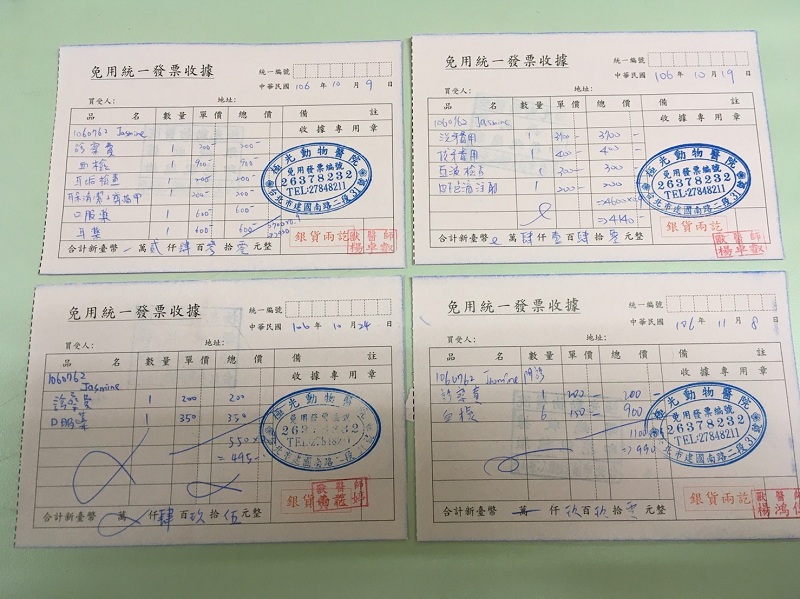 免用統一發票收據
統一編號
中華民國 106 年 10 月 9 日
買受人: 地址:
品 名 數量 單價 總價 備 註
1060762 Jasmine 收據專用章
診察費 1 200- 200-
血檢 1 900- 900-
1 200-
口服藥 1 600- 600-
耳藥 1 600- 600-
極光動物醫院
免用發票編號
26378232
TEL:27848211
台北市建國南路二段31號
銀貨兩訖
獸醫師
合計新臺幣 萬貳仟肆百參拾零元整
免用統一發票收據
統一編號
中華民國 106 年 10 月 19 日
買受人: 地址:
品 名 數量 單價 總價 備 註
1060762 Jasmine 收據專用章
1 3700- 3700-
1 400- 400-
1 300- 300-
1 200- 200-
=>4140-
極光動物醫院
免用發票編號
26378232
TEL:27848211
台北市建國南路二段31號
銀貨兩訖
獸醫師
合計新臺幣 萬肆仟壹百肆拾零元整
免用統一發票收據
統一編號
中華民國 106 年 10 月 24 日
買受人: 地址:
品 名 數量 單價 總價 備 註
1060762 收據專用章
Jasmine
診察費 1 200 200
口服藥 1 350 350
=495-
極光動物醫院
免用發票編號
TEL:
建國南路二段31號
銀貨
獸醫師
合計新臺幣 萬 仟肆百玖拾伍元整
免用統一發票收據
統一編號
中華民國 106 年 11 月 8 日
買受人: 地址:
品 名 數量 單價 總價 備 註
1060762 Jasmine 收據專用章
診察費 1 200- 200-
血檢 6 150- 900
=>990
極光動物醫院
免用發票編號
26378232
TEL:27848211
台北市建國南路二段31號
銀貨兩訖
獸醫師
合計新臺幣 萬 仟玖百玖拾零元整